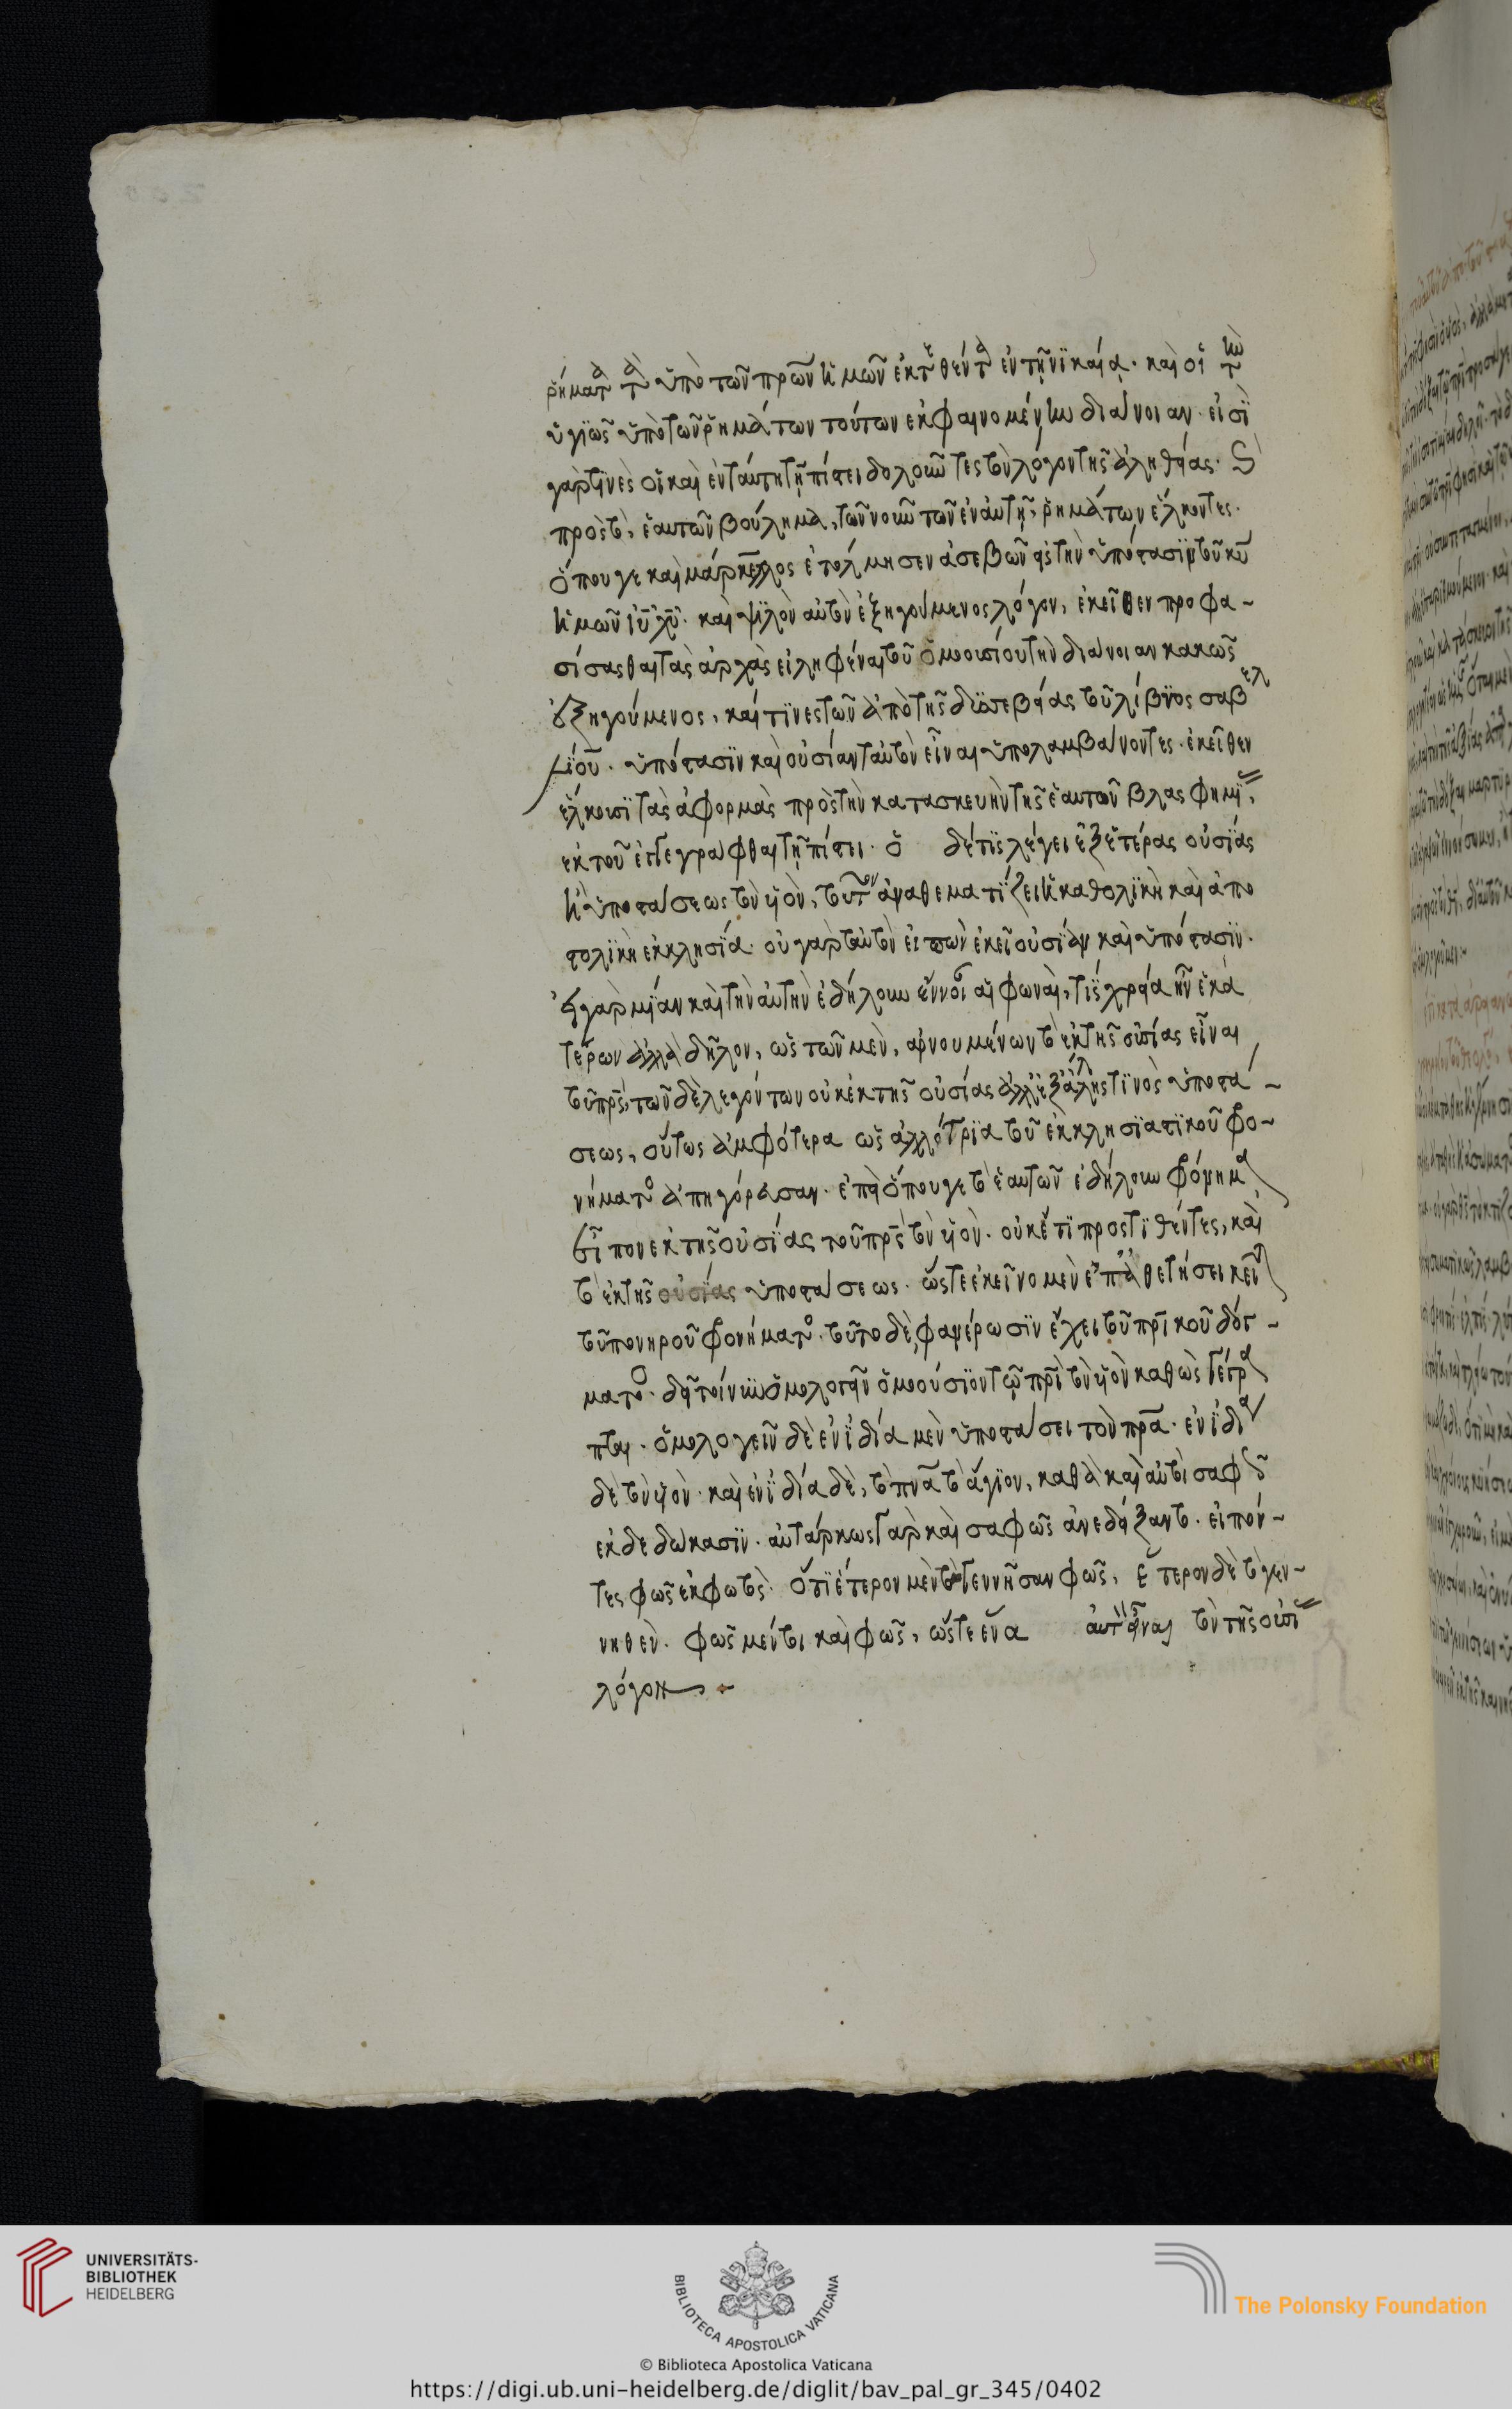 ῥήματα τὰ ὑπὸ τῶν πρῶν ἡμῶν ἐκτεθέντα ἐν τῇ νϊκαία. καὶ οἱ τὴν
ὑγϊῶς ὑπὸ τῶν ῥημάτων τούτων ἐκφαινομένην διάνοιαν. εἰσὶ
γάρ τϊνὲς οἳ καὶ ἐν ταύτη τῆ πίστει δολοῦντες τὸν λόγον τῆς ἀληθείας. καὶ
πρὸς τὸ, ἑαυτῶν βούλημα, τῶν νοῦν τῶν ἐν αὐτῆ, ῥημάτων ἕλκοντες.
ὅπου γε καὶ μάρκελλος ἐτόλμησεν ἀσεβῶν εἰς τὴν ὑπόστασϊν τοῦ κυ
ἡμῶν ιυ χυ. καὶ ψϊλὸν αὐτὸν ἐξηγούμενος λόγον, ἐκεῖθεν προφα-
σίσασθαι τὰς ἀρχὰς εἰληφέναι τοῦ ὁμοουσίου τὴν διάνοιαν κακῶς
ἐξηγούμενος, καί τϊνες τῶν ἀπὸ τῆς δϋσσεβείας τοῦ λίβϋος σαβελ
λΐου. ὑπόστασϊν καὶ οὐσίαν ταὐτὸν εἶναι ὑπολαμβάνοντες. ἐκεῖθεν
ἕλκουσϊ τὰς ἀφορμὰς πρὸς τὴν κατασκευὴν τῆς ἑαυτῶν βλασφημΐας,
ἐκ τοῦ ἐγγεγράφθαι τῆ πίστει. ὃ δέ τϊς λέγει ἐξ ἑτέρας οὐσΐας
ἢ ὑποστάσεως τὸν υἱὸν, τοῦτον ἀναθεματΐζει ἡ καθολϊκὴ καὶ ἀπο
στολϊκὴ ἐκκλησΐα. οὐ γὰρ ταὐτὸν εἶπων ἐκεῖ οὐσΐαν καὶ ὑπόστασϊν.
εἰ γὰρ μΐαν καὶ τὴν αὐτὴν ἐδήλουν ἔννοιαν αἱ φωναὶ, τΐς χρεία ἦν ἑκα
τέρων ἀλλὰ δῆλον, ὡς τῶν μὲν, ἀρνουμένων τὸ ἐκ τῆς οὐσίας εἶναι
τοῦ πρς, τῶν δὲ λεγόντων οὐκ ἐκ τῆς οὐσίας ἀλλ' ἐξ ἄλλης τϊνὸς ὑποστά-
σεως, οὕτως ἀμφότερα ὡς ἀλλότρϊα τοῦ ἐκκλησϊαστϊκοῦ φρο-
νήματος ἀπηγόρευσαν. ἐπεὶ ὅπου γε τὸ ἑαυτῶν ἐδήλουν φρόνημα
εἶπον ἐκ τῆς οὐσΐας τοῦ πρς τὸν υἱὸν. οὐκέτϊ προστϊθέντες, καὶ
τὸ ἐκ τῆς οὐσίας ὑποστάσεως. ὥστε ἐκεῖνο μὲν ἐπ' ἀθετήσει κεῖται
τοῦ πονηροῦ φρονήματος. τοῦτο δὲ, φανέρωσϊν ἔχει τοῦ πρϊκοῦ δόγ-
ματος. δεῖ τοίνυν ὁμολογεῖν ὁμοούσϊον τῶ πρϊ τὸν υἱὸν καθὼς γέγρα
πται. ὁμολογεῖν δὲ ἐν ἰδία μὲν ὑποστάσει τὸν πρα. ἐν ἰδία
δὲ τὸν υἱὸν. καὶ ἐν ἰδία δὲ, τὸ πνα τὸ ἅγϊον, καθὰ καὶ αὐτοὶ σαφῶς
ἐκδεδώκασϊν. αὐτάρκως γὰρ καὶ σαφῶς ἀνεδείξαντο. εἰπόν-
τες φῶς ἐκ φωτὸς. ὅτϊ ἕτερον μὲν τὸ γεννῆσαν φῶς, ἕτερον δὲ τὸ γεν-
νηθὲν. φῶς μέντοι καὶ φῶς, ὥστε ἕνα αὐτ εἶναι τὸν τῆς οὐσΐας
λόγον.
UNIVERSITÄTS-
BIBLIOTHEK
HEIDELBERG
BIBLIOTECA APOSTOLICA VATICANA
The Polonsky Foundation
© Biblioteca Apostolica Vaticana
https://digi.ub.uni-heidelberg.de/diglit/bav_pal_gr_345/0402